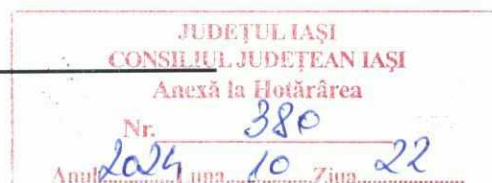 JUDEȚUL IAȘI
CONSILIUL JUDEȚEAN IAȘI
Anexă la Hotărârea
Nr. 380
Anul 2024 Luna 10 Ziua 22